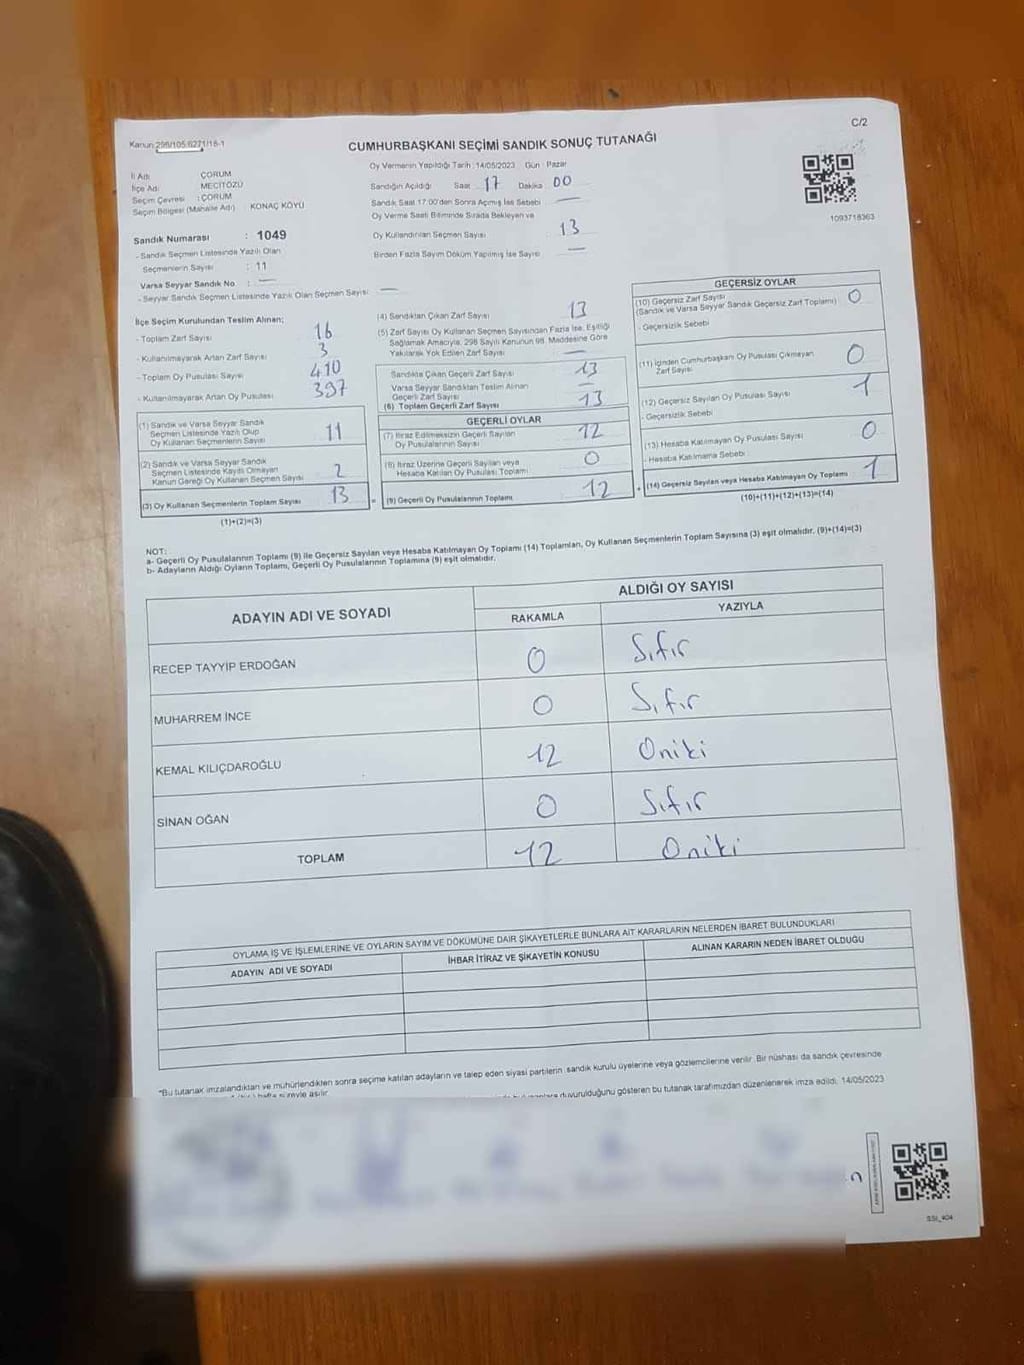 C/2
Kanun:298/105,6271/18-1
CUMHURBAŞKANI SEÇİMİ SANDIK SONUÇ TUTANAĞI
İl Adı: ÇORUM
İlçe Adı: MECİTÖZÜ
Seçim Çevresi : ÇORUM
Seçim Bölgesi (Mahalle Adı) : KONAÇ KÖYÜ
Sandık Numarası : 1049
- Sandık Seçmen Listesinde Yazılı Olan
Seçmenlerin Sayısı : 11
Varsa Seyyar Sandık No : —
- Seyyar Sandık Seçmen Listesinde Yazılı Olan Seçmen Sayısı : —
Oy Vermenin Yapıldığı Tarih : 14/05/2023 Gün : Pazar
Sandığın Açıldığı Saat 17 Dakika 00
Sandık Saat 17:00'den Sonra Açılmış İse Sebebi —
Oy Verme Saati Bitiminde Sırada Bekleyen ve
Oy Kullandırılan Seçmen Sayısı 13
Birden Fazla Sayım Döküm Yapılmış İse Sayısı —
1093718363
İlçe Seçim Kurulundan Teslim Alınan;
- Toplam Zarf Sayısı 16
- Kullanılmayarak Artan Zarf Sayısı 3
- Toplam Oy Pusulası Sayısı 410
- Kullanılmayarak Artan Oy Pusulası 397
(1) Sandık ve Varsa Seyyar Sandık
Seçmen Listesinde Yazılı Olup
Oy Kullanan Seçmenlerin Sayısı 11
(2) Sandık ve Varsa Seyyar Sandık
Seçmen Listesinde Kayıtlı Olmayan
Kanun Gereği Oy Kullanan Seçmen Sayısı 2
(3) Oy Kullanan Seçmenlerin Toplam Sayısı 13
(1)+(2)=(3)
(4) Sandıktan Çıkan Zarf Sayısı 13
(5) Zarf Sayısı Oy Kullanan Seçmen Sayısından Fazla İse, Eşitliği
Sağlamak Amacıyla, 298 Sayılı Kanunun 98. Maddesine Göre
Yakılarak Yok Edilen Zarf Sayısı —
Sandıkta Çıkan Geçerli Zarf Sayısı 13
Varsa Seyyar Sandıktan Teslim Alınan
Geçerli Zarf Sayısı —
(6) Toplam Geçerli Zarf Sayısı 13
GEÇERLİ OYLAR
(7) İtiraz Edilmeksizin Geçerli Sayılan
Oy Pusulalarının Sayısı 12
(8) İtiraz Üzerine Geçerli Sayılan veya
Hesaba Katılan Oy Pusulası Toplamı 0
= (9) Geçerli Oy Pusulalarının Toplamı 12
GEÇERSİZ OYLAR
(10) Geçersiz Zarf Sayısı
(Sandık ve Varsa Seyyar Sandık Geçersiz Zarf Toplamı) 0
- Geçersizlik Sebebi
(11) İçinden Cumhurbaşkanı Oy Pusulası Çıkmayan
Zarf Sayısı 0
(12) Geçersiz Sayılan Oy Pusulası Sayısı 1
- Geçersizlik Sebebi
(13) Hesaba Katılmayan Oy Pusulası Sayısı 0
- Hesaba Katılmama Sebebi
+ (14) Geçersiz Sayılan veya Hesaba Katılmayan Oy Toplamı 1
(10)+(11)+(12)+(13)=(14)
NOT:
a- Geçerli Oy Pusulalarının Toplamı (9) ile Geçersiz Sayılan veya Hesaba Katılmayan Oy Toplamı (14) Toplamları, Oy Kullanan Seçmenlerin Toplam Sayısına (3) eşit olmalıdır. (9)+(14)=(3)
b- Adayların Aldığı Oyların Toplamı, Geçerli Oy Pusulalarının Toplamına (9) eşit olmalıdır.
ADAYIN ADI VE SOYADI
ALDIĞI OY SAYISI
RAKAMLA YAZIYLA
RECEP TAYYİP ERDOĞAN 0 Sıfır
MUHARREM İNCE 0 Sıfır
KEMAL KILIÇDAROĞLU 12 Oniki
SİNAN OĞAN 0 Sıfır
TOPLAM 12 Oniki
OYLAMA İŞ VE İŞLEMLERİNE VE OYLARIN SAYIM VE DÖKÜMÜNE DAİR ŞİKAYETLERLE BUNLARA AİT KARARLARIN NELERDEN İBARET BULUNDUKLARI
ADAYIN ADI VE SOYADI İHBAR İTİRAZ VE ŞİKAYETİN KONUSU ALINAN KARARIN NEDEN İBARET OLDUĞU
"Bu tutanak imzalandıktan ve mühürlendikten sonra seçime katılan adayların ve talep eden siyasi partilerin sandık kurulu üyelerine veya gözlemcilerine verilir. Bir nüshası da sandık çevresinde
hafta süreyle asılır. duyurulduğunu gösteren bu tutanak tarafımızdan düzenlenerek imza edildi. 14/05/2023
SSI_404